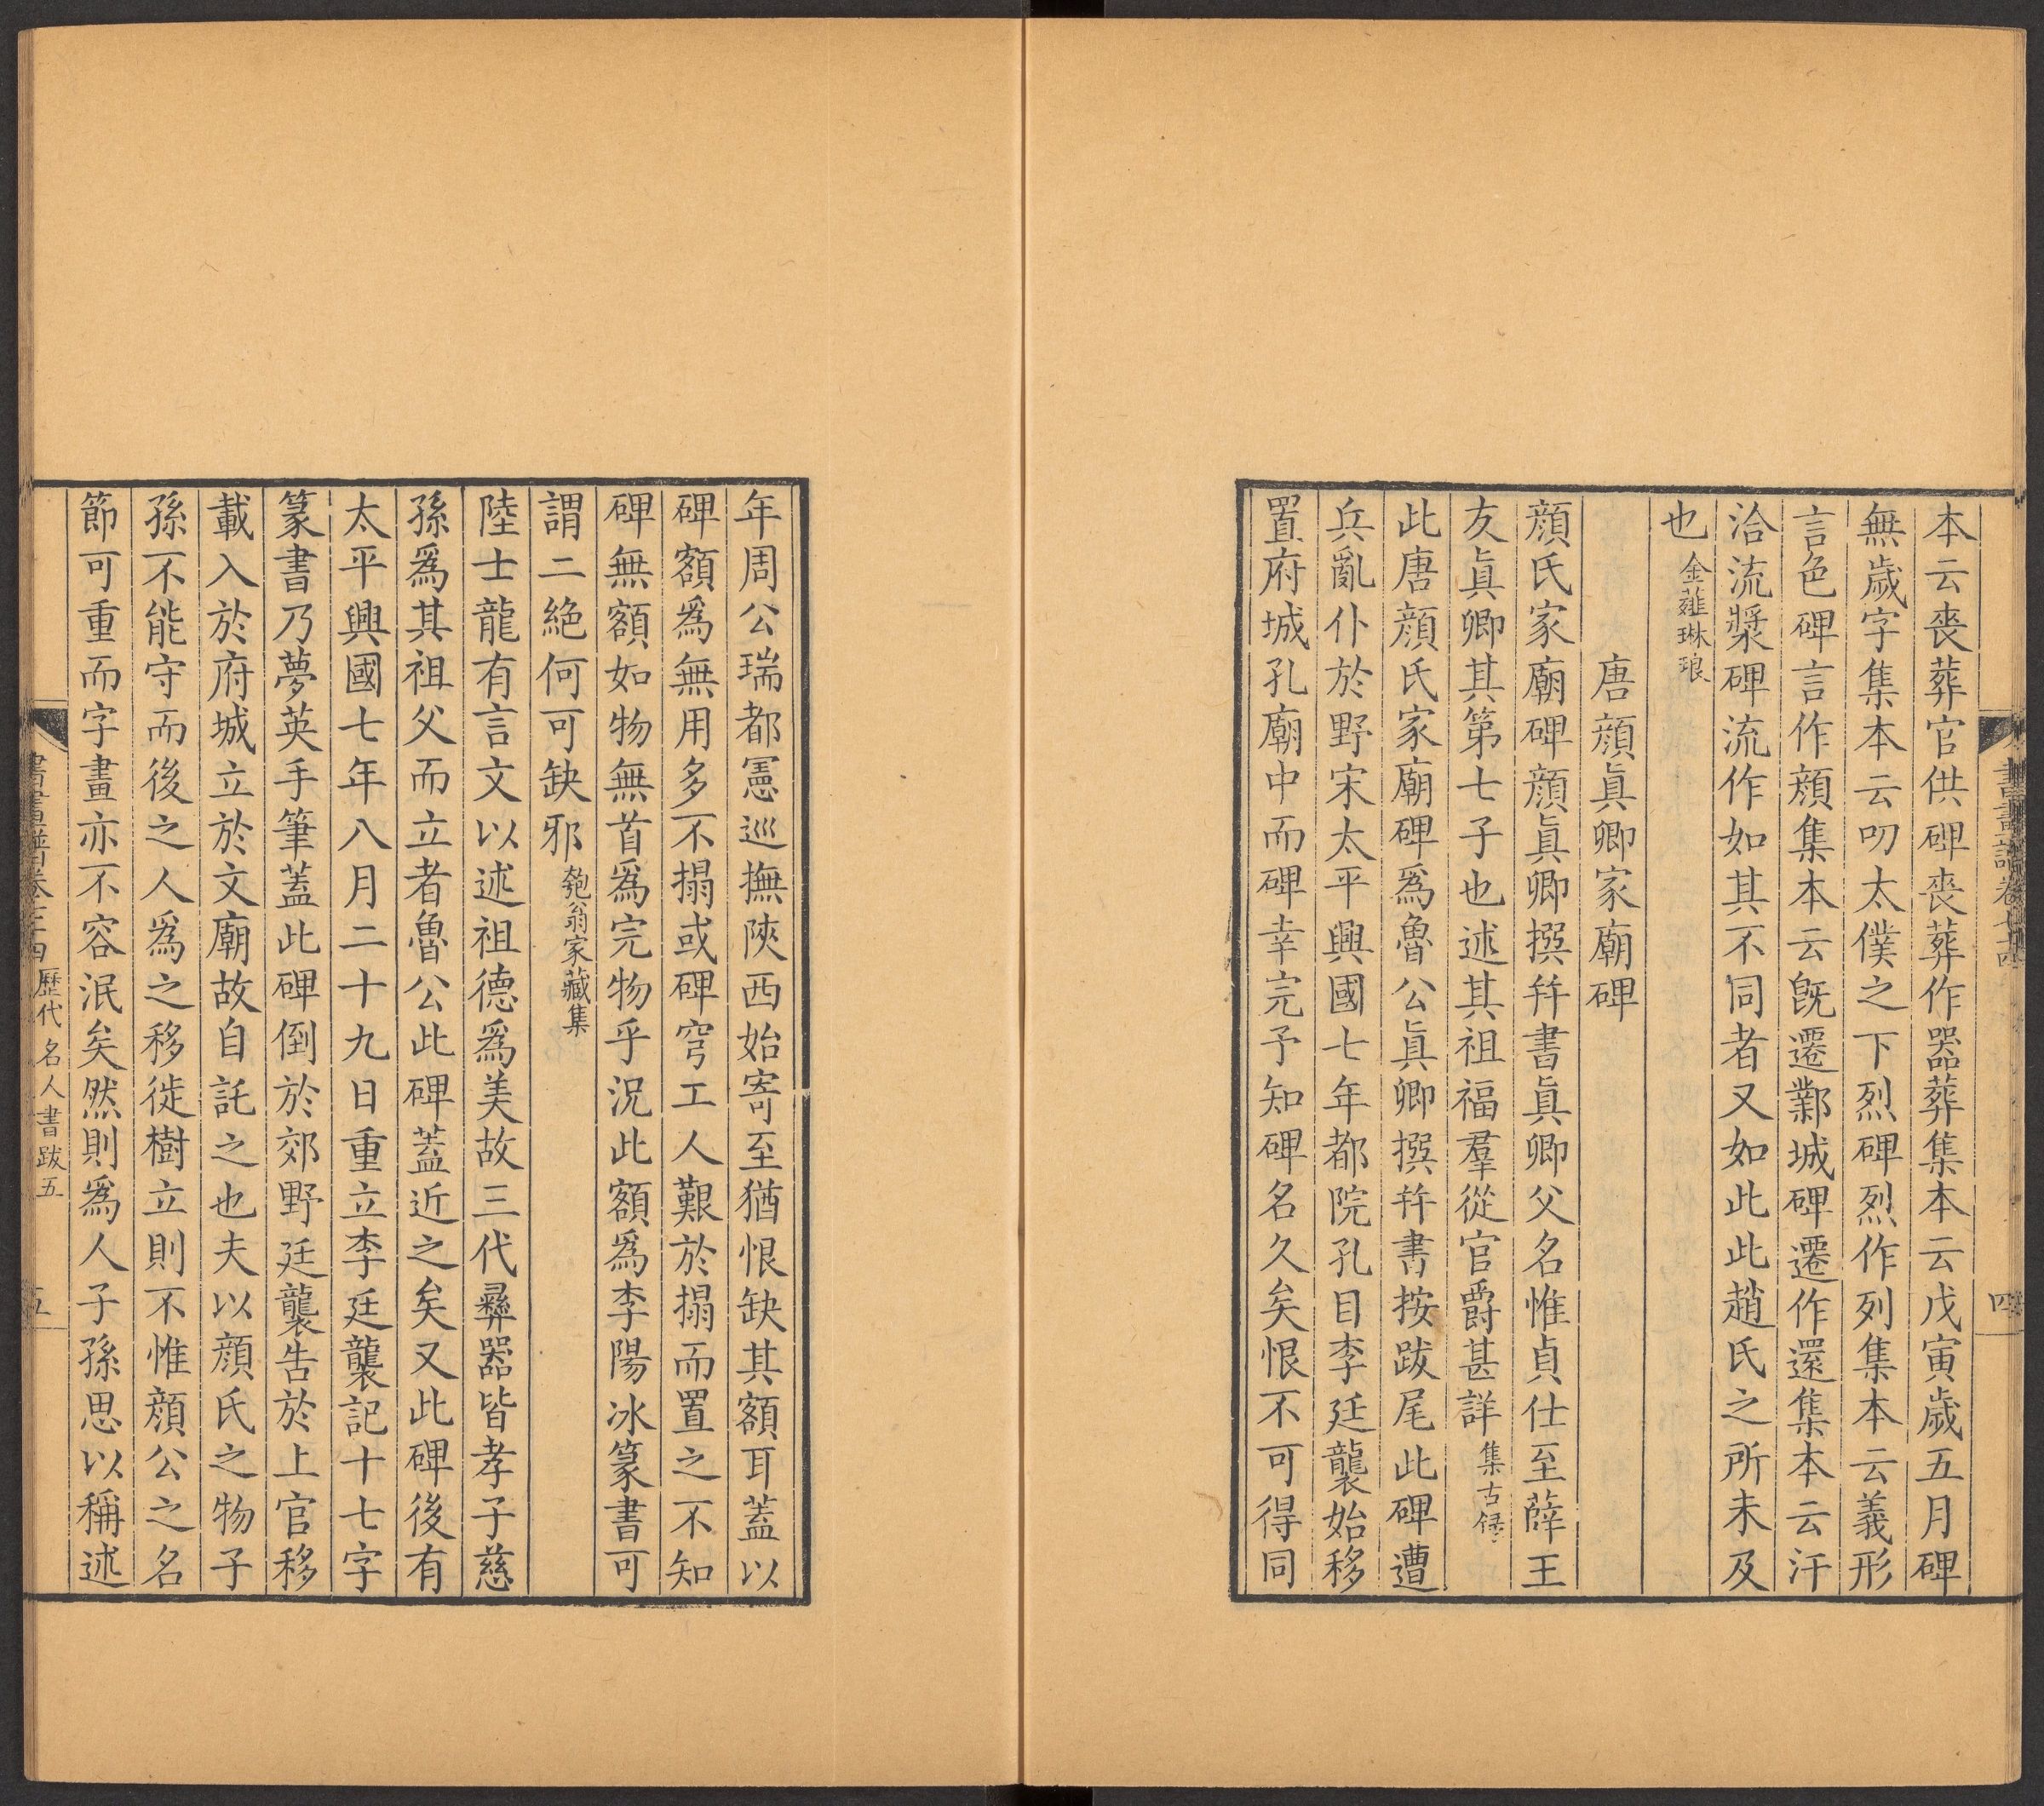 本云喪葬官供碑喪葬作噐葬集本云戊寅歲五月碑
無歲字集本云叨太僕之下烈碑烈作列集本云義形
言色碑言作頺集本云旣遷鄴城碑遷作還集本云汗
洽流漿碑流作如其不同者又如此此趙氏之所未及
也 金薤琳琅
唐顏眞卿家廟碑
顏氏家廟碑顏眞卿撰幷書眞卿父名惟貞仕至薛王
友眞卿其第七子也述其祖福羣從官爵甚詳 集古錄
此唐顏氏家廟碑爲魯公眞卿撰幷書按跋尾此碑遭
兵亂仆於野宋太平興國七年都院孔目李廷襲始移
置府城孔廟中而碑幸完予知碑名久矣恨不可得同
書畫譜卷七十四
四
年周公瑞都憲巡撫陝西始寄至猶恨缺其額耳蓋以
碑額爲無用多不搨或碑穹工人艱於搨而置之不知
碑無額如物無首爲完物乎況此額爲李陽冰篆書可
謂二絕何可缺邪 匏翁家藏集
陸士龍有言文以述祖德爲美故三代彞噐皆孝子慈
孫爲其祖父而立者魯公此碑蓋近之矣又此碑後有
太平興國七年八月二十九日重立李廷襲記十七字
篆書乃夢英手筆蓋此碑倒於郊野廷襲告於上官移
載入於府城立於文廟故自託之也夫以顏氏之物子
孫不能守而後之人爲之移徙樹立則不惟顏公之名
節可重而字畫亦不容泯矣然則爲人子孫思以稱述
書畫譜卷七十四 歷代名人書跋五
五